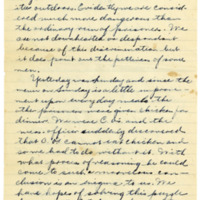 its outdoor. Evidently we are consid-
ered much more dangerous than
the ordinary run of prisoners. We
are not downhearted or despondent
because of the discrimination but
it does point out the pettiness of some
men.
Yesterday was Sunday and since the
menu on Sunday is a little improve-
ment upon every day meals the
the prisoners were given chicken for
dinner. Maurice E. is and the
mess officer suddenly discovered
that O. O. cannot eat chicken and
so we had to do without it. With
what process of reasoning he could
come to such a marvelous con-
clusion is an enigma to us. We
have hopes of solving this puzzle